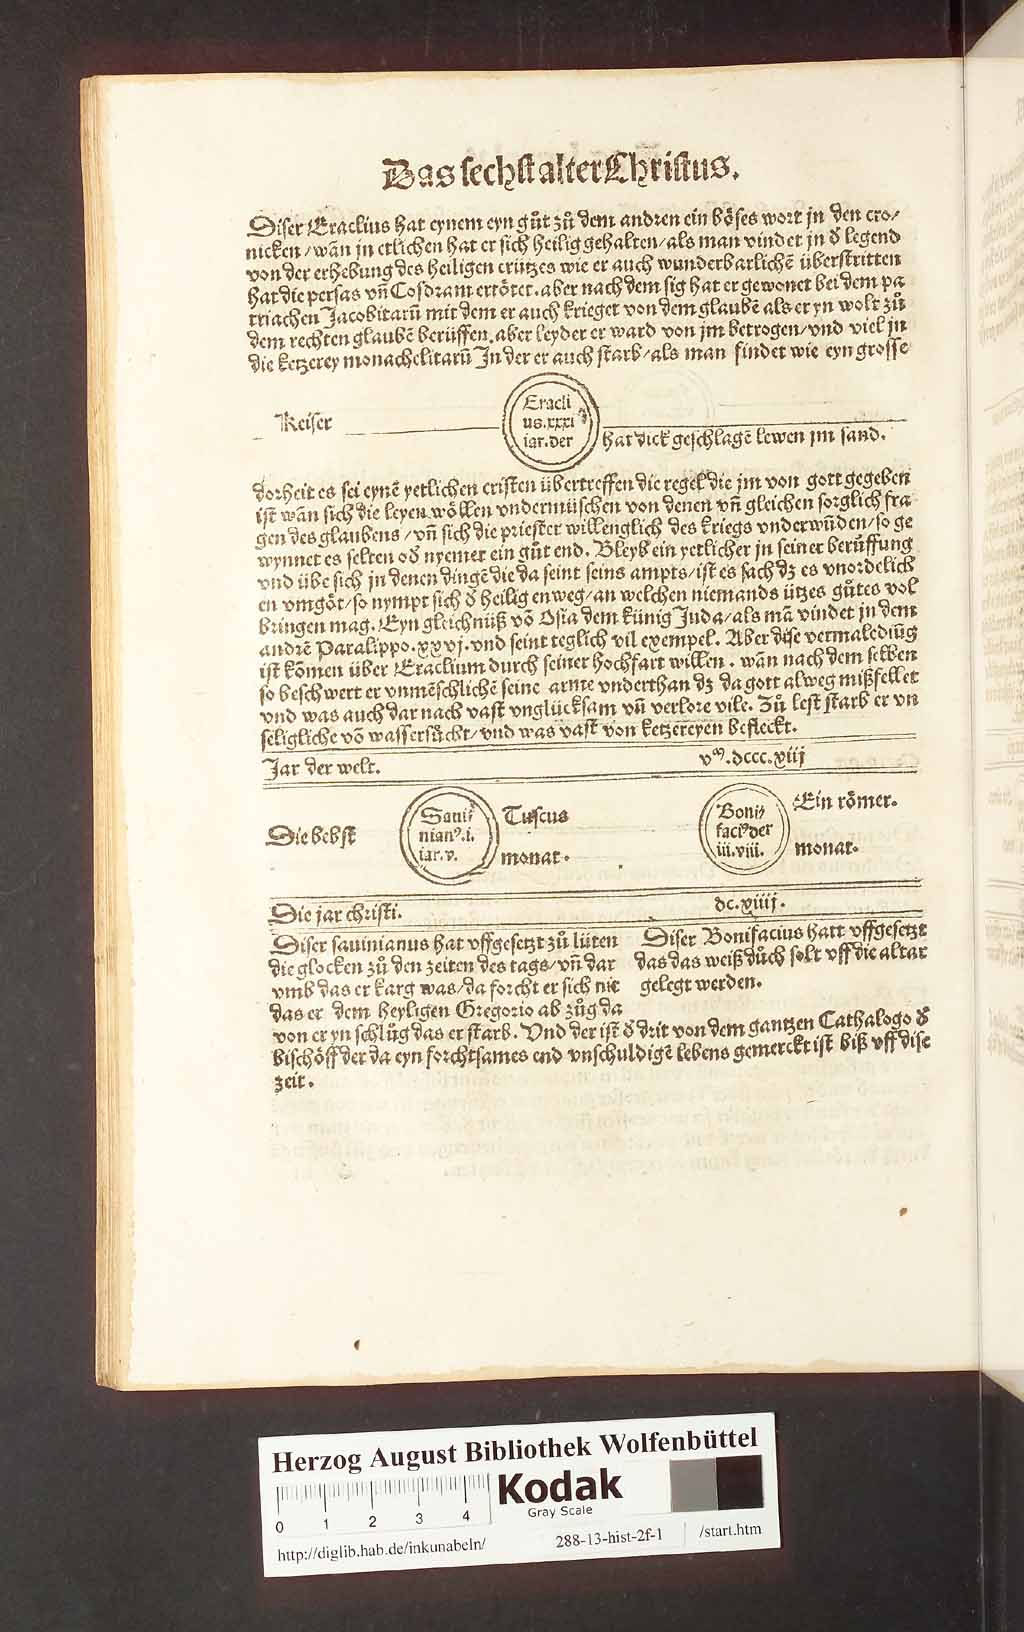 Das sechst alter Christus.
Diser Eraclius hat eynem eyn gůt zů dem andren ein böses wort jn den cro/
nicken/wān jn etlichen hat er sich heilig gehalten/als man vindet jn d̕ legend
von der erhebung des heiligen crützes wie er auch wunderbarlichē überstritten
hat die persas vn̄ Cosdram ertötet. aber nach dem sig hat er gewonet bei dem pa
triachen Jacobitarū mit dem er auch krieget von dem glaubē als er yn wolt zů
dem rechten glaubē berüffen. aber leyder er ward von jm betrogen/vnd viel jn
die ketzerey monachelitarū Jn der er auch starb/als man findet wie eyn grosse
Keiser
Eracli
us.xxxi
iar.der
hat dick geschlagē lewen jm sand.
dorheit es sei eynē yetlichen cristen übertreffen die regel die jm von gott gegeben
ist wān sich die leyen wöllen vndermüschen von denen vn̄ gleichen sorglich fra
gen des glaubens/vn̄ sich die priester willenglich des kriegs vnderwn̄den/so ge
wynnet es selten od̕ nyemer ein gůt end. Bleyb ein yetlicher jn seiner berůffung
vnd übe sich jn denen dingē die da seint seins ampts/ist es sach dz es vnordelich
en vmgöt/so nympt sich d̕ heilig en weg/an welchen niemands ützes gůtes vol
bringen mag. Eyn gleichnüß vō Osia dem künig Juda/als mā vindet jn dem
andrē Paralippo.xxvj.vnd seint teglich vil exempel. Aber dise vermalediūg
ist kōmen über Eraclium durch seiner hochfart willen. wān nach dem selben
so beschwert er vnmēschlichē seine arme vnderthan dz da gott alweg mißfellet
vnd was auch dar nach vast vnglücksam vn̄ verlore vile. Zů lest starb er vn
seligliche vō wassersůcht/vnd was vast von ketzereyen befleckt.
Jar der welt.
vᵐ.dcccxiij
Die bebst
Saui/
nian⁹.i.
iar.v.
Tuscus
monat.
Boni/
faci⁹der
iii.viii.
Ein römer.
monat.
Die jar christi.
dc.xiiij.
Diser sauinianus hat vffgesetzt zů lüten
die glocken zů den zeiten des tags/vn̄ dar
vmb das er karg was/da forcht er sich nit
das er dem heyligen Gregorio ab zůg da
Diser Bonifacius hatt vffgesetzt
das das weiß důch solt vff die altar
gelegt werden.
von er yn schlůg das er starb. Vnd der ist d̕ drit von dem gantzen Cathalogo d̕
bischöff der da eyn forchtsames end vnschuldigē lebens gemerckt ist biß vff dise
zeit.
Herzog August Bibliothek Wolfenbüttel
0 1 2 3 4
Kodak
Gray Scale
http://diglib.hab.de/inkunabeln/
288-13-hist-2f-1
/start.htm